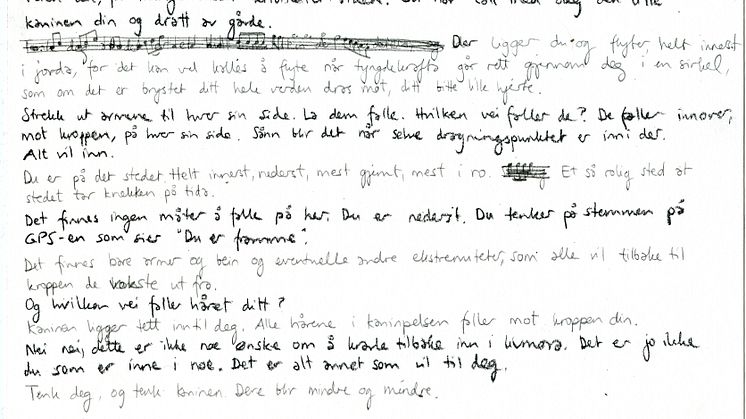 kaninen din og dratt av gårde.
Der ligger du og flyter, helt innerst
i jorda, for det kan vel kalles å flyte når tyngdekrafta går rett gjennom deg i en sirkel,
som om det er brystet ditt hele verden dras mot, ditt bitte lille hjerte.
Strekk ut armene til hver sin side. La dem falle. Hvilken vei faller de? De faller innover,
mot kroppen, på hver sin side. Sånn blir det når selve dragningspunktet er inni der.
Alt vil inn.
Du er på det stedet. Helt innerst, nederst, mest gjemt, mest i ro. Et så rolig sted at
stedet tar knekken på tida.
Det finnes ingen måter å falle på her. Du er nederst. Du tenker på stemmen på
GPS-en som sier "Du er framme".
Det finnes bare armer og bein og eventuelle andre ekstremiteter, som alle vil tilbake til
kroppen de vokste ut fra.
Og hvilken vei faller håret ditt?
Kaninen ligger tett inntil deg. Alle hårene i kaninpelsen faller mot kroppen din.
Nei nei, dette er ikke noe ønske om å krabbe tilbake inn i livmora. Det er jo ikke
du som er inne i noe. Det er alt annet som vil til deg.
Tenk deg, og tenk kaninen. Dere blir mindre og mindre.